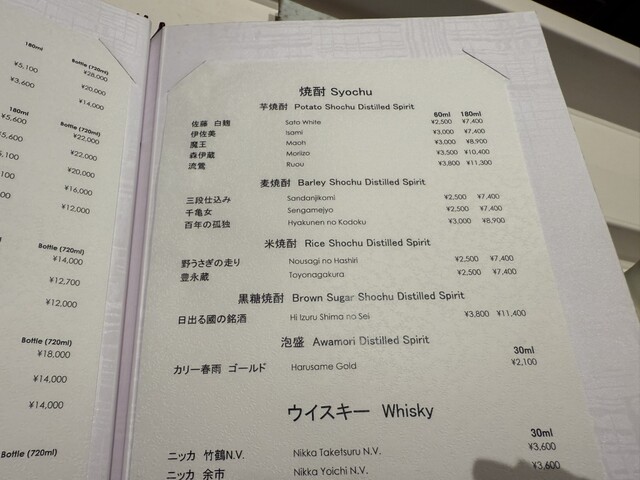 180ml Bottle (720ml)
¥5,100 ¥28,000
¥3,600 ¥20,000
¥14,000
180ml Bottle (720ml)
¥5,600 ¥22,000
5,600 ¥22,000
5,100 ¥20,000
000 ¥16,000
¥12,000
Bottle (720ml)
¥14,000
¥12,700
¥12,000
Bottle (720ml)
¥18,000
¥14,000
¥14,000
Bottle (720ml)
焼酎 Syochu
芋焼酎 Potato Shochu Distilled Spirit
60ml 180ml
佐藤 白麹 Sato White ¥2,500 ¥7,400
伊佐美 Isami ¥3,000 ¥7,400
魔王 Maoh ¥3,000 ¥8,900
森伊蔵 Moriiza ¥3,500 ¥10,400
流鶯 Ruou ¥3,800 ¥11,300
麦焼酎 Barley Shochu Distilled Spirit
三段仕込み Sandanjikomi ¥2,500 ¥7,400
千亀女 Sengamejyo ¥2,500 ¥7,400
百年の孤独 Hyakunen no Kodoku ¥3,000 ¥8,900
米焼酎 Rice Shochu Distilled Spirit
野うさぎの走り Nousagi no Hashiri ¥2,500 ¥7,400
豊永蔵 Toyonagakura ¥2,500 ¥7,400
黒糖焼酎 Brown Sugar Shochu Distilled Spirit
日出る國の銘酒 Hi Izuru Shima no Sei ¥3,800 ¥11,400
泡盛 Awamori Distilled Spirit
30ml
カリー春雨 ゴールド Harusame Gold ¥2,100
ウイスキー Whisky
30ml
ニッカ 竹鶴N.V. Nikka Taketsuru N.V. ¥3,600
ニッカ 余市 Nikka Yoichi N.V. ¥3,600